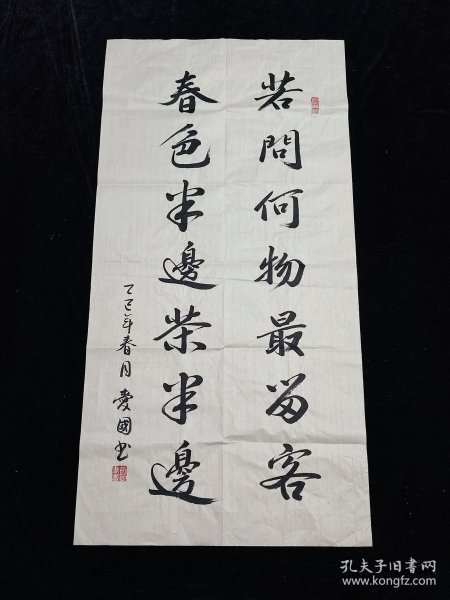 若問何物最留客
春色半邊茶半邊
乙巳年春月愛國书
孔夫子旧书网
www.kongfz.com